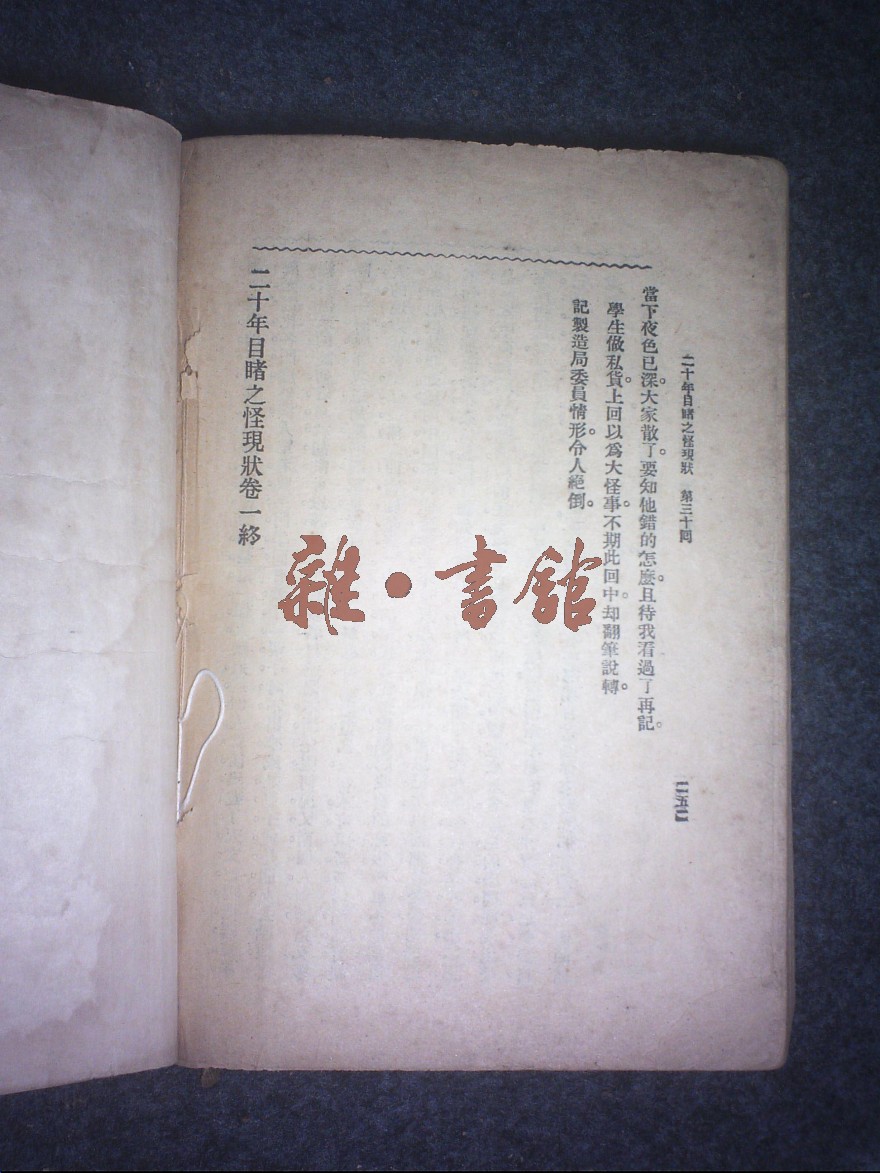 二十年目睹之怪現狀 第三十回
二五二
當下夜色已深。大家散了。要知他錯的怎麼。且待我看過了再記。
學生做私貨。上回以爲大怪事。不期此回中。却翻筆說轉。
記製造局委員情形。令人絕倒。
二十年目睹之怪現狀卷一終
雜·書館